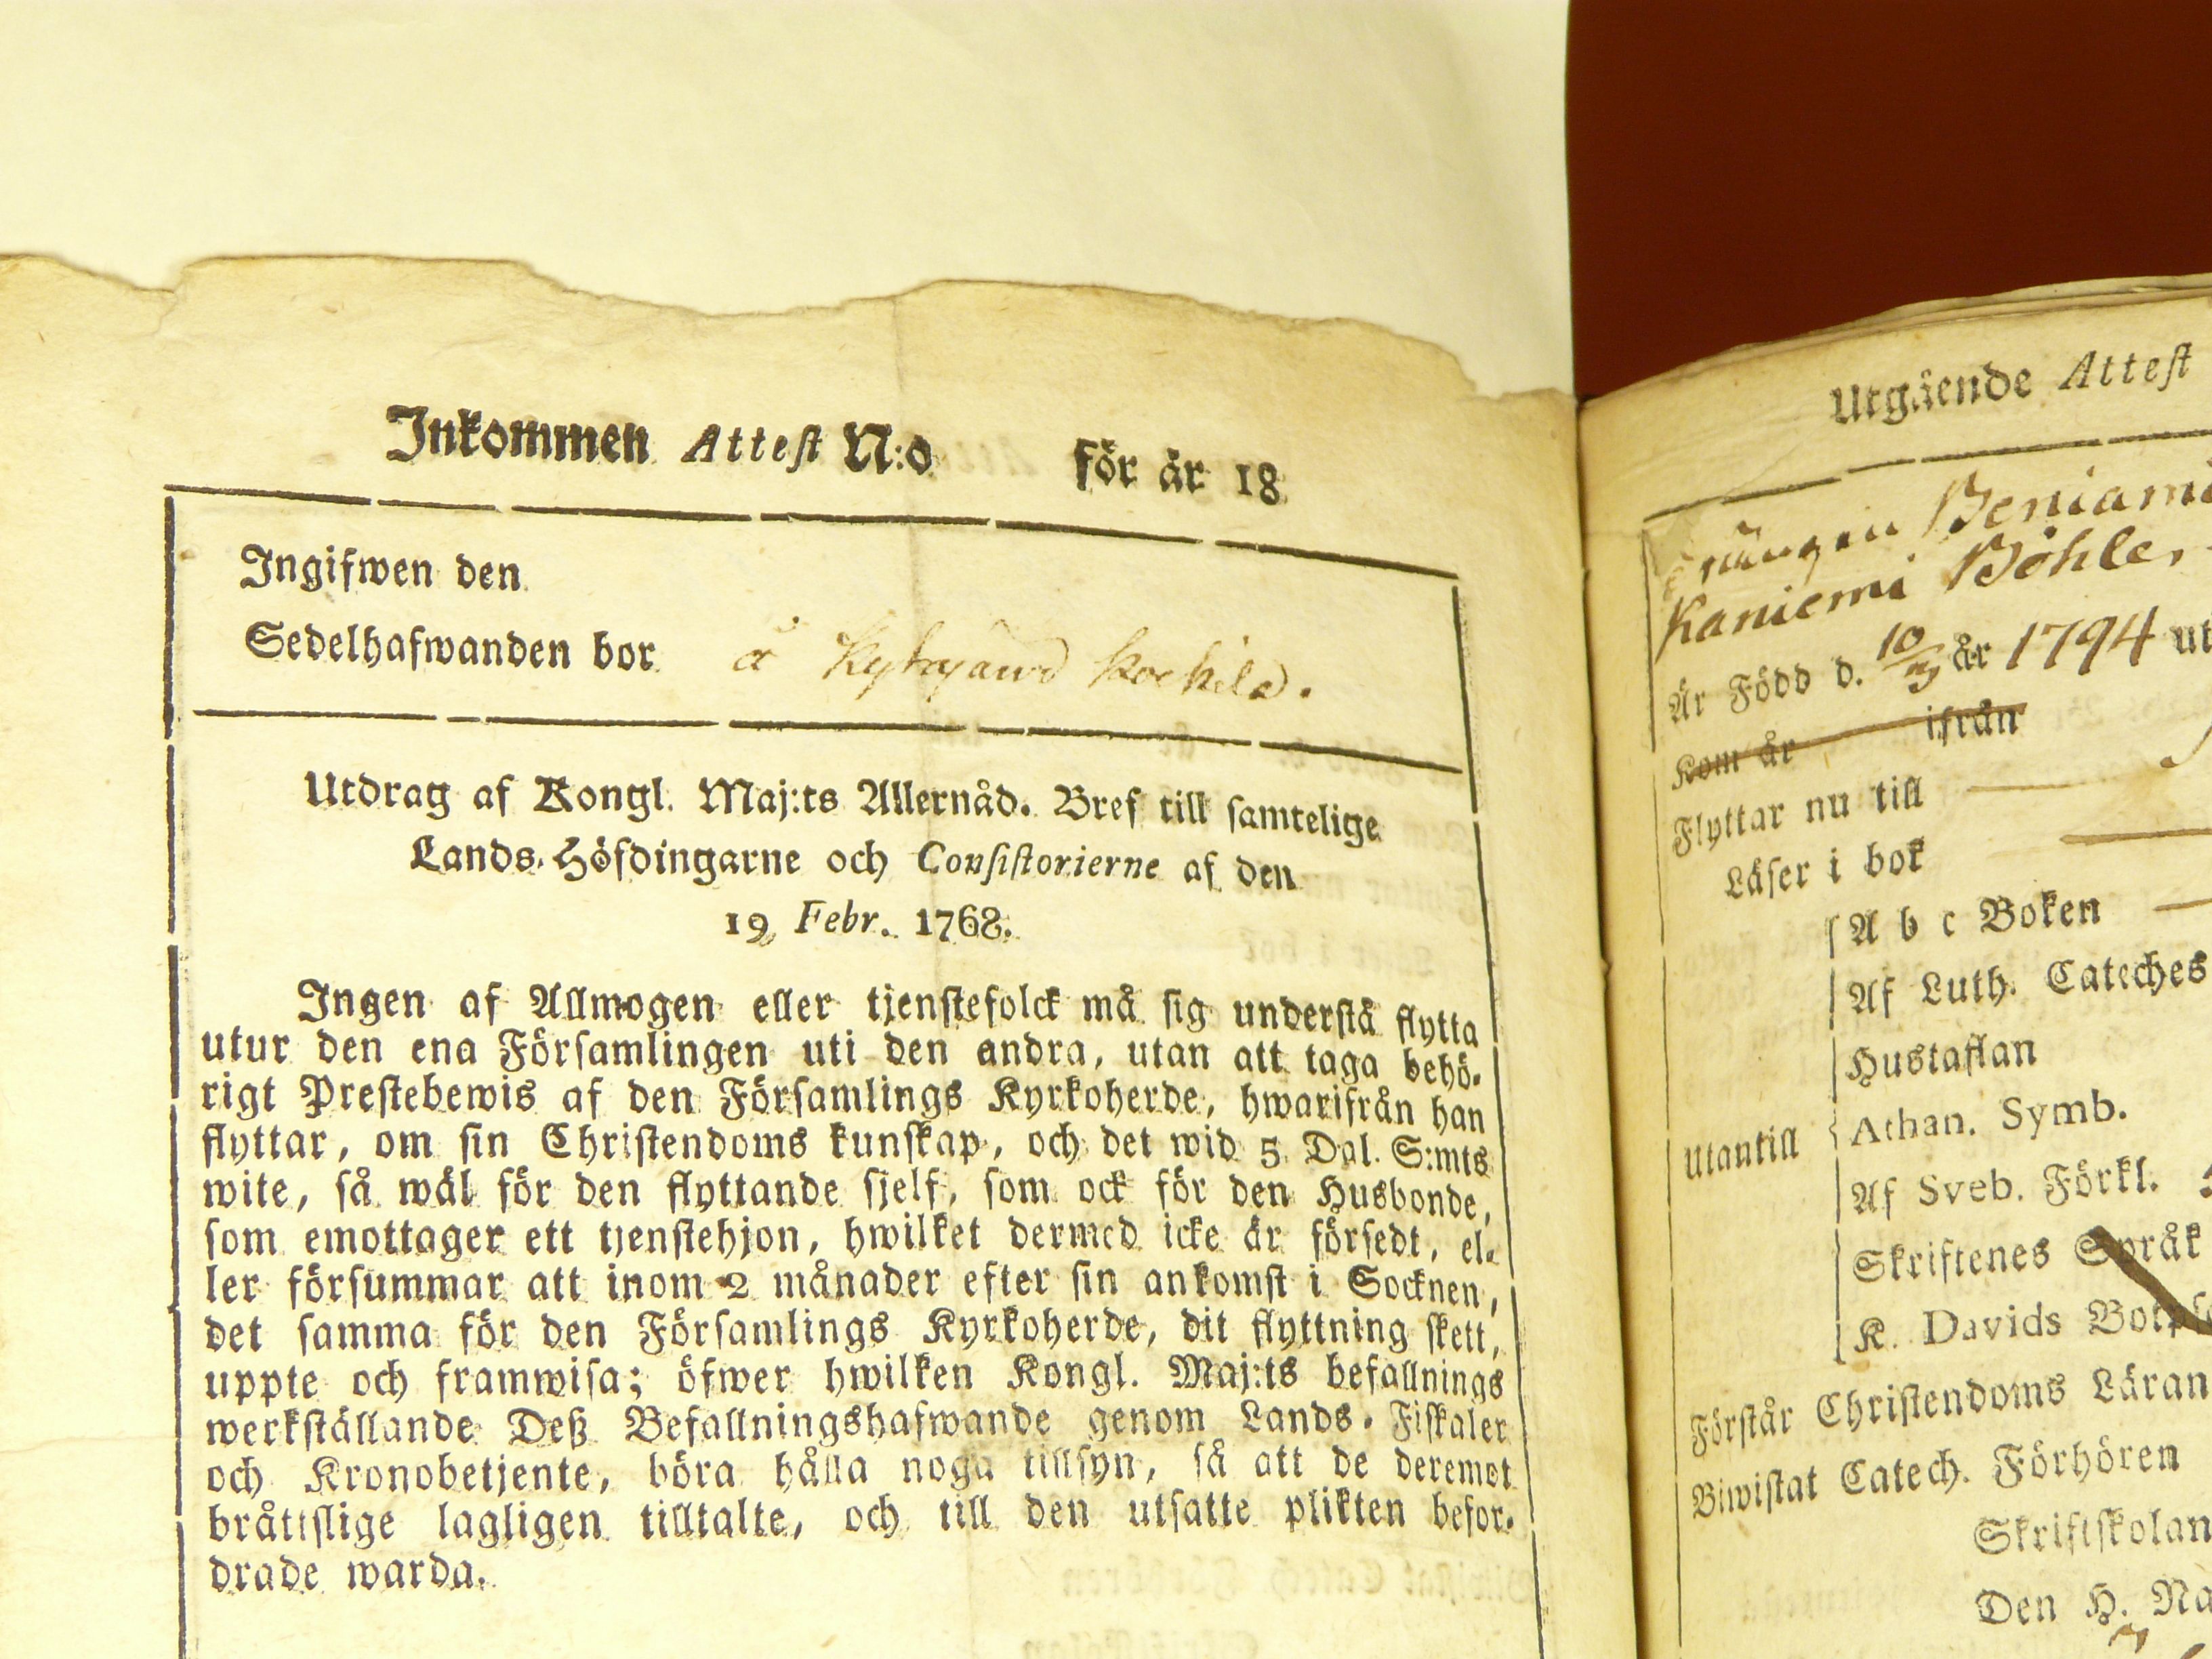 Inkommen Attest N:o för år 18
Ingifwen den
Sedelhafwanden bor å
Utdrag af Kongl. Maj:ts Allernåd. Bref till samtelige
Lands-Höfdingarne och Consistorierne af den
19 Febr. 1768.
Ingen af Allmogen eller tjenstefolck må sig understå flytta
utur den ena Församlingen uti den andra, utan att taga behö-
rigt Prestebewis af den Församlings Kyrkoherde, hwarifrån han
flyttar, om sin Christendoms kunskap, och det wid 5 Dal. S:mts
wite, så wäl för den flyttande sjelf, som ock för den Husbonde,
som emottager ett tjenstehjon, hwilket dermed icke är försedt, el-
ler försummar att inom 2 månader efter sin ankomst i Socknen,
det samma för den Församlings Kyrkoherde, dit flyttning skett,
uppte och framwisa; öfwer hwilken Kongl. Maj:ts befallnings
werkställande Deß Befallningshafwande genom Lands-Fiskaler
och Kronobetjente, böra hålla noga tillsyn, så att de deremot
bråtislige lagligen tilltalte, och till den utsatte plikten befor-
drade warda.
Utgående Attest
Beniami
Kaniemi Böhle,
Är Född d. 10 år 1794 ut
Kom år ifrån
Flyttar nu till
Läser i bok
Utantill
A b c Boken
Af Luth. Cateches
Hustaflan
Athan. Symb.
Af Sveb. Förkl.
Skriftenes Språk
K. Davids Botps
Förstår Christendoms Läran
Biwistat Catech. Förhören
Skriftskolan
Den H. Na